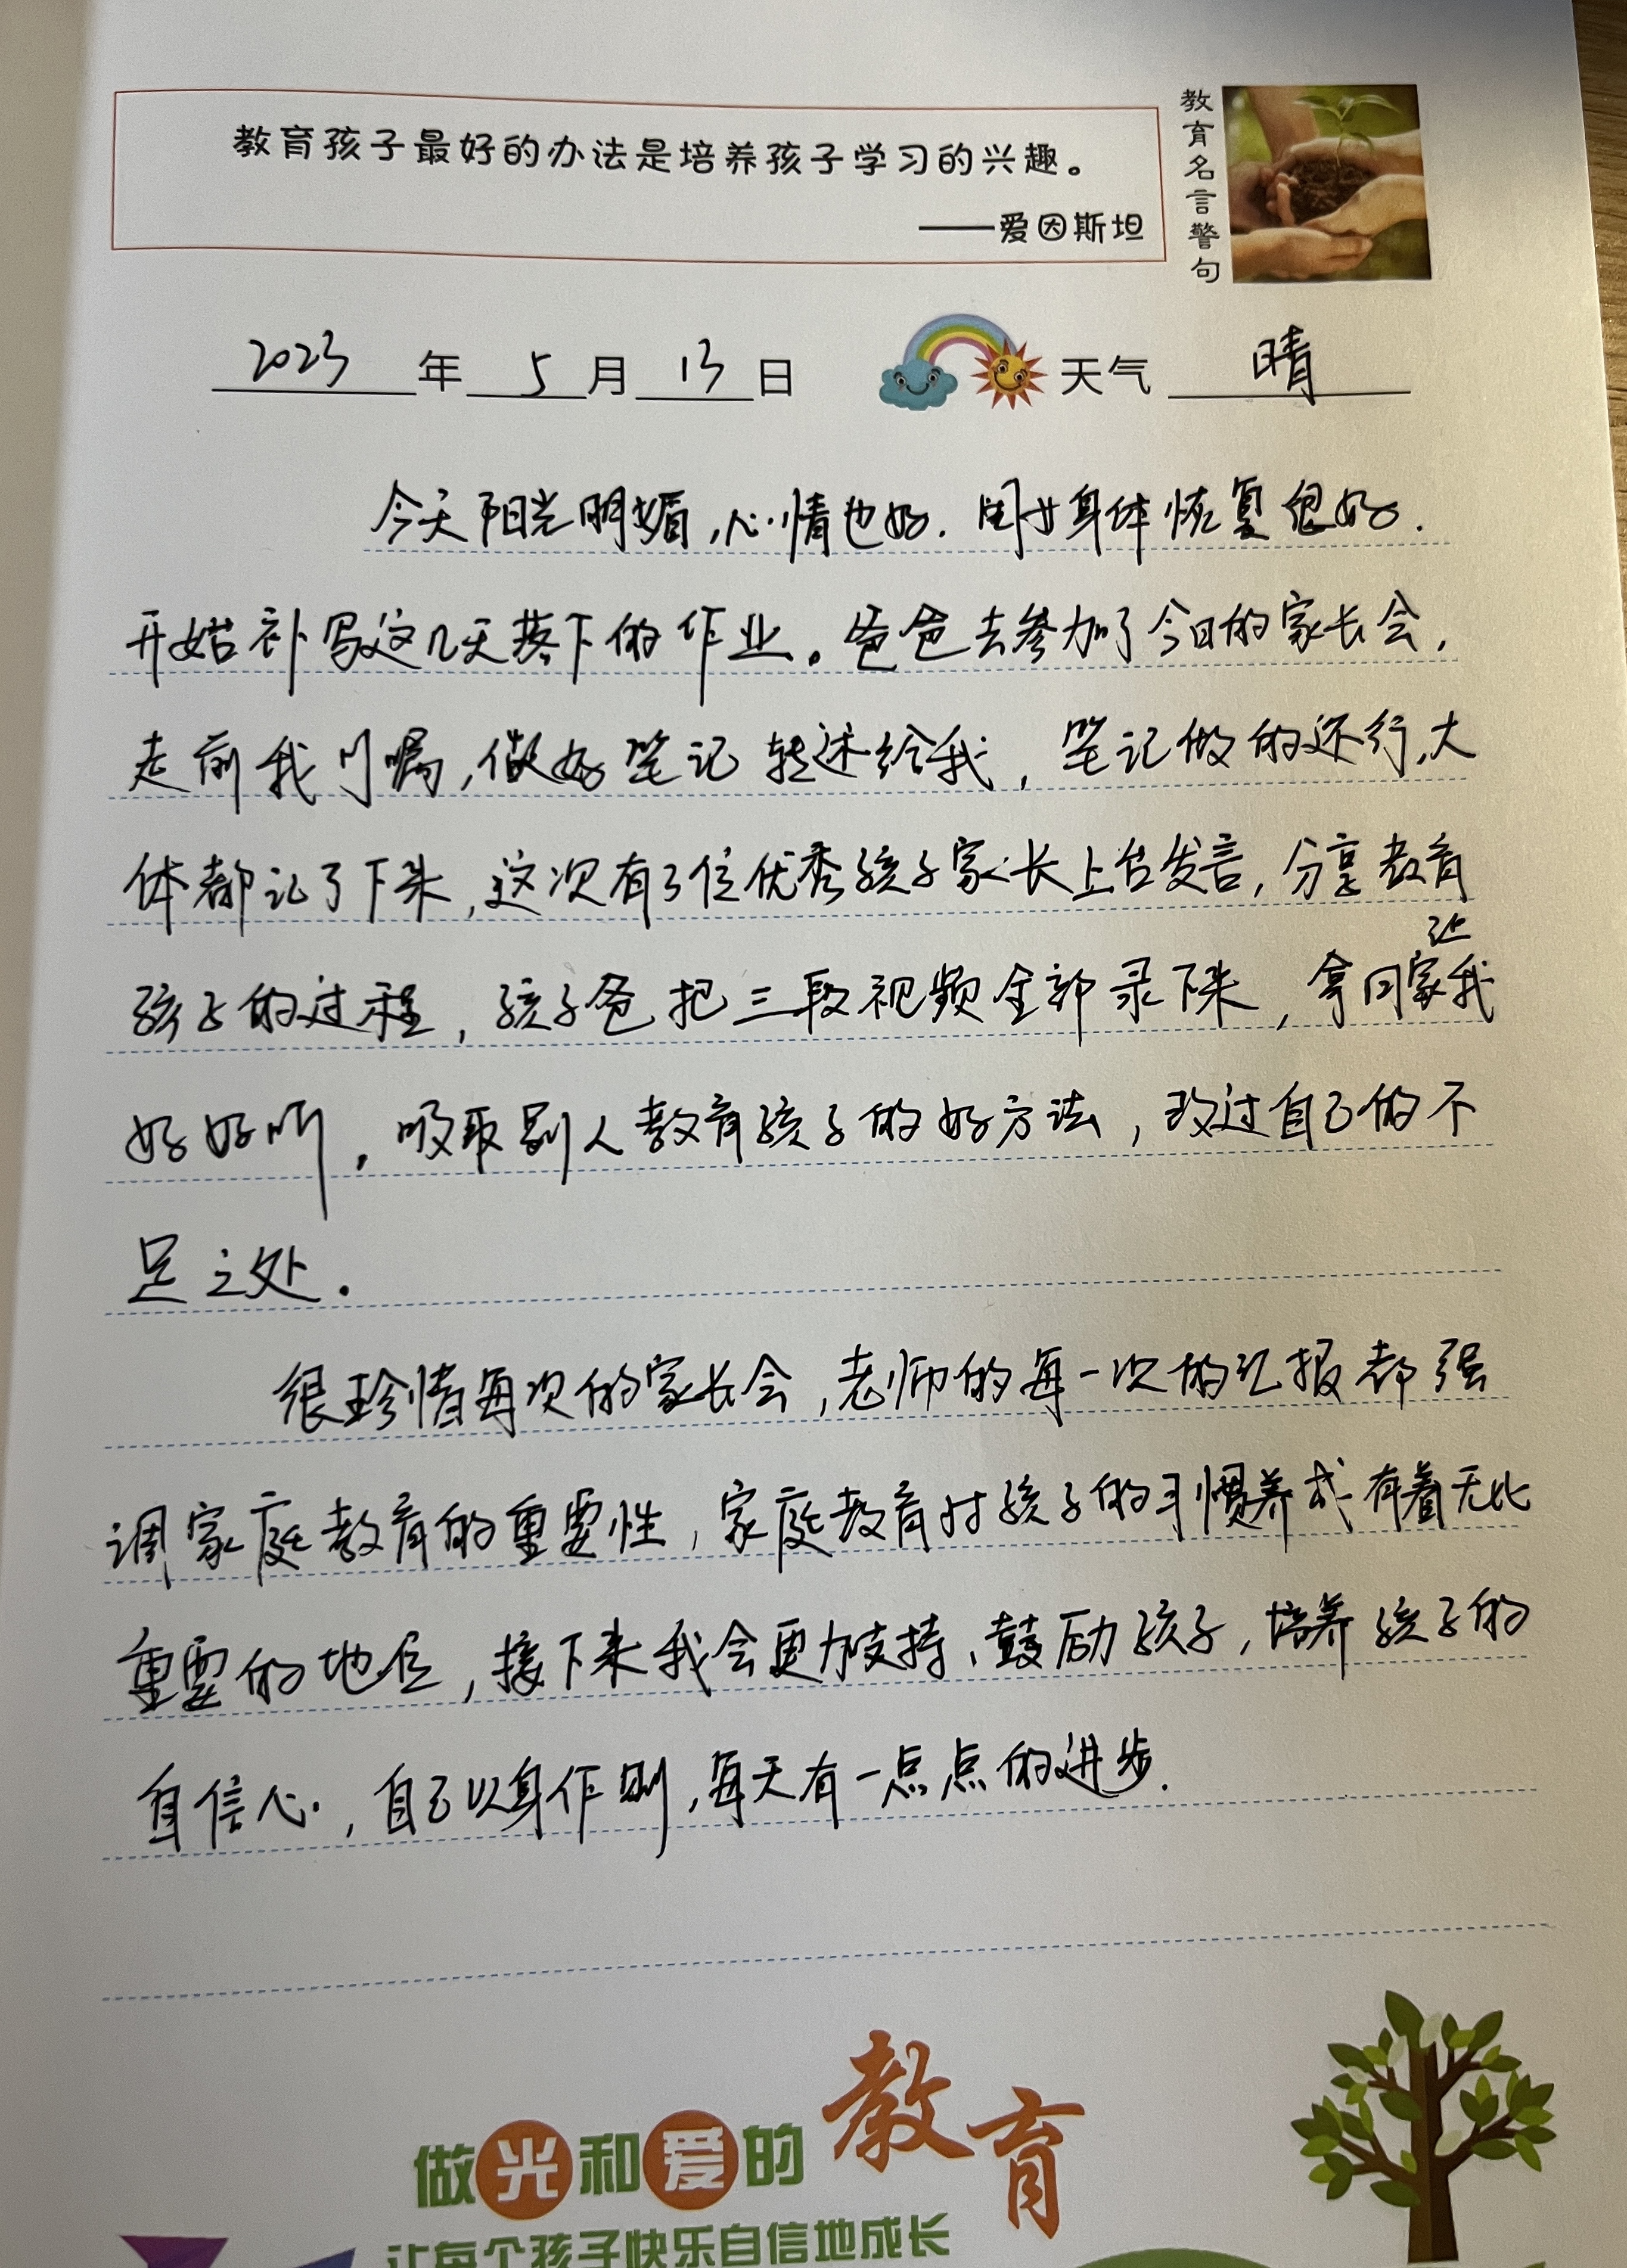 教育孩子最好的办法是培养孩子学习的兴趣。
——爱因斯坦
教育名言警句
2023年5月13日 天气 晴
今天阳光明媚,心情也好.身体恢复很好.
开始补写这几天落下的作业。爸爸去参加了今日的家长会,
走前我叮嘱,做好笔记转述给我,笔记做的还行,大
体都记了下来,这次有3位优秀孩子家长上台发言,分享教育
孩子的过程,孩子爸把三段视频全部录下来,拿回家让我
好好听,吸取别人教育孩子的好方法,改过自己的不
足之处.
很珍惜每次的家长会,老师的每一次的汇报都强
调家庭教育的重要性,家庭教育对孩子的习惯养成有着无比
重要的地位,接下来我会更加支持、鼓励孩子,培养孩子的
自信心,自己以身作则,每天有一点点的进步.
做光和爱的教育
让每个孩子快乐自信地成长